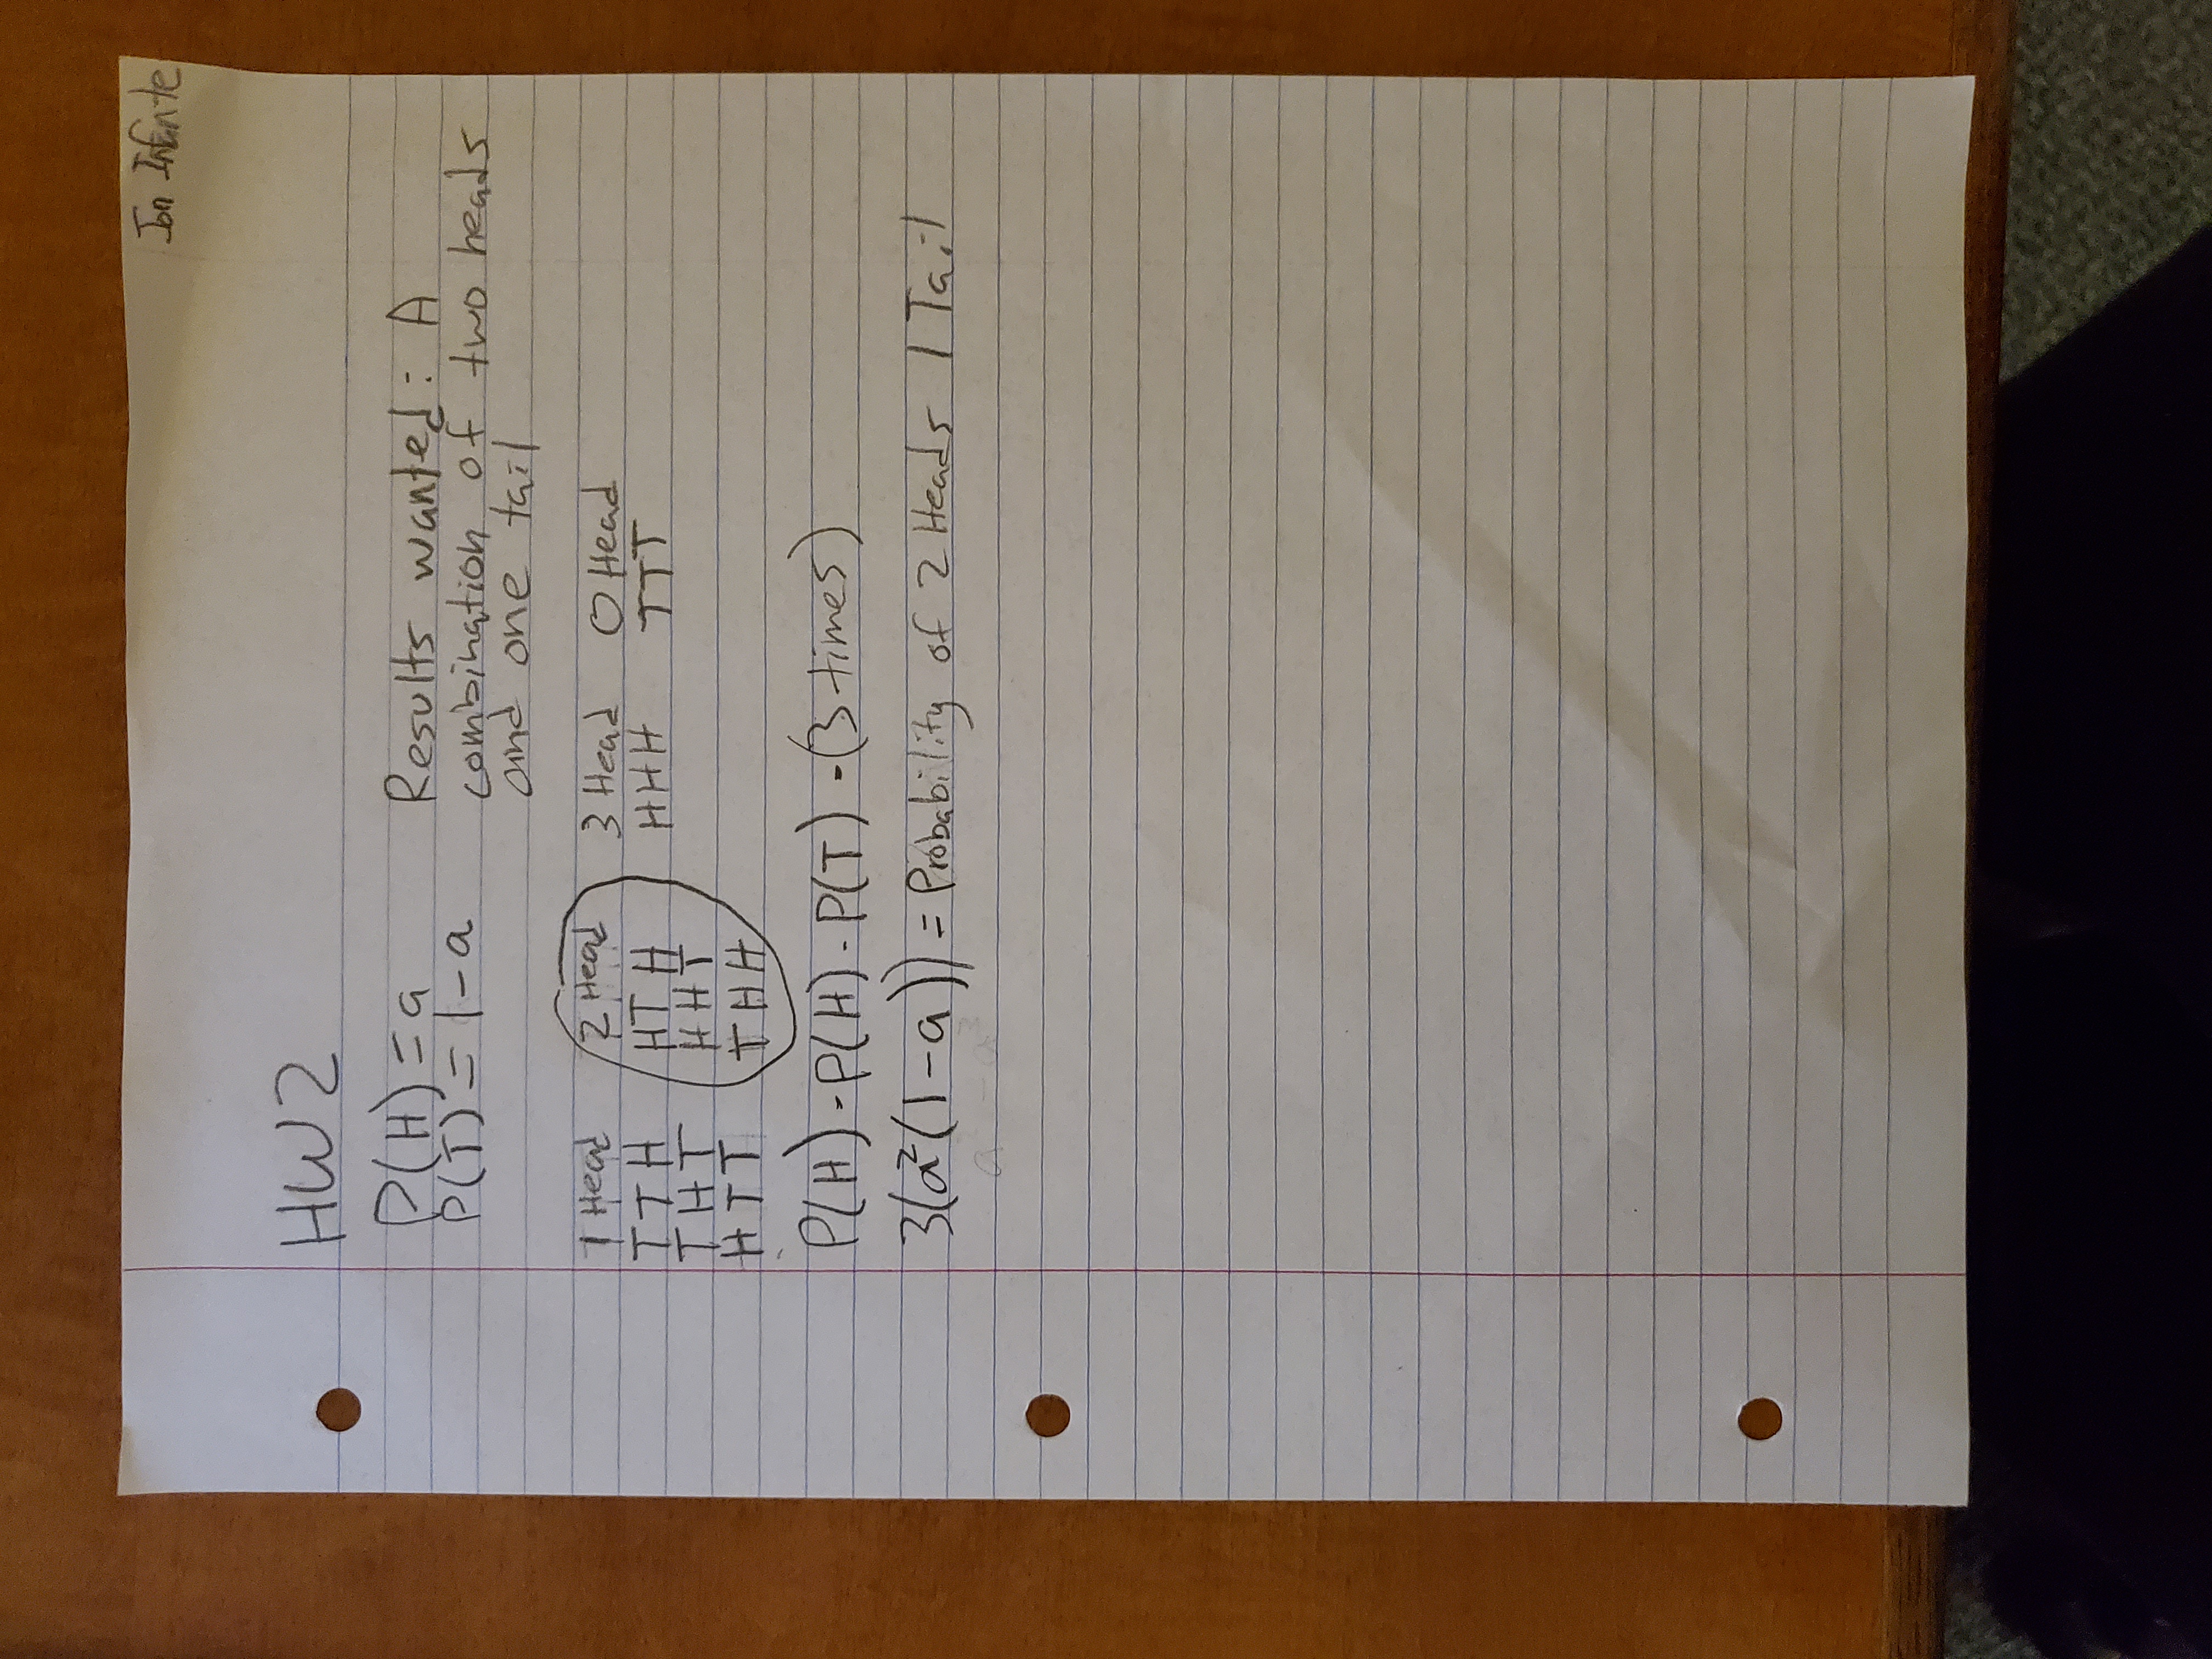 Jon Infante
HW2
P(H) = a
P(T) = 1-a
Results wanted: A
combination of two heads
and one tail
1 Head 2 Head 3 Head 0 Head
TTH HTH HHH TTT
THT HHT
HTT THH
P(H) · P(H) · P(T) · (3 times)
3(a²(1-a)) = Probability of 2 Heads 1 Tail
a² - a³